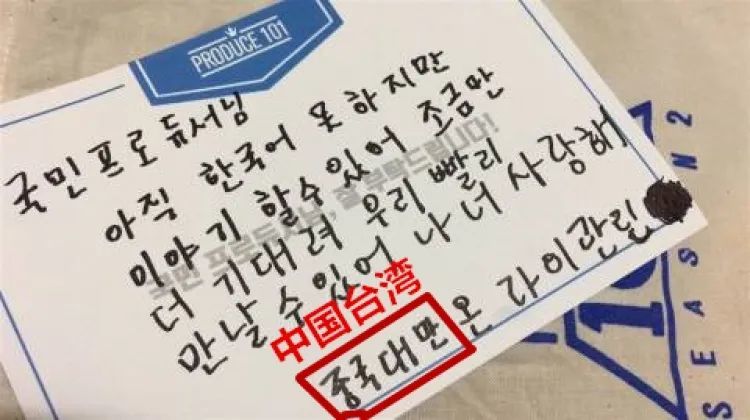 PRODUCE 101
국민프로듀서님
아직 한국어 못하지만
이야기 할수있어 조금만
더 기대려 우리 빨리
만날수있어 나 너 사랑해
중국대만 온 라이관린
국민 프로듀서님, 잘 부탁드립니다!
中国台湾
SEASON 2